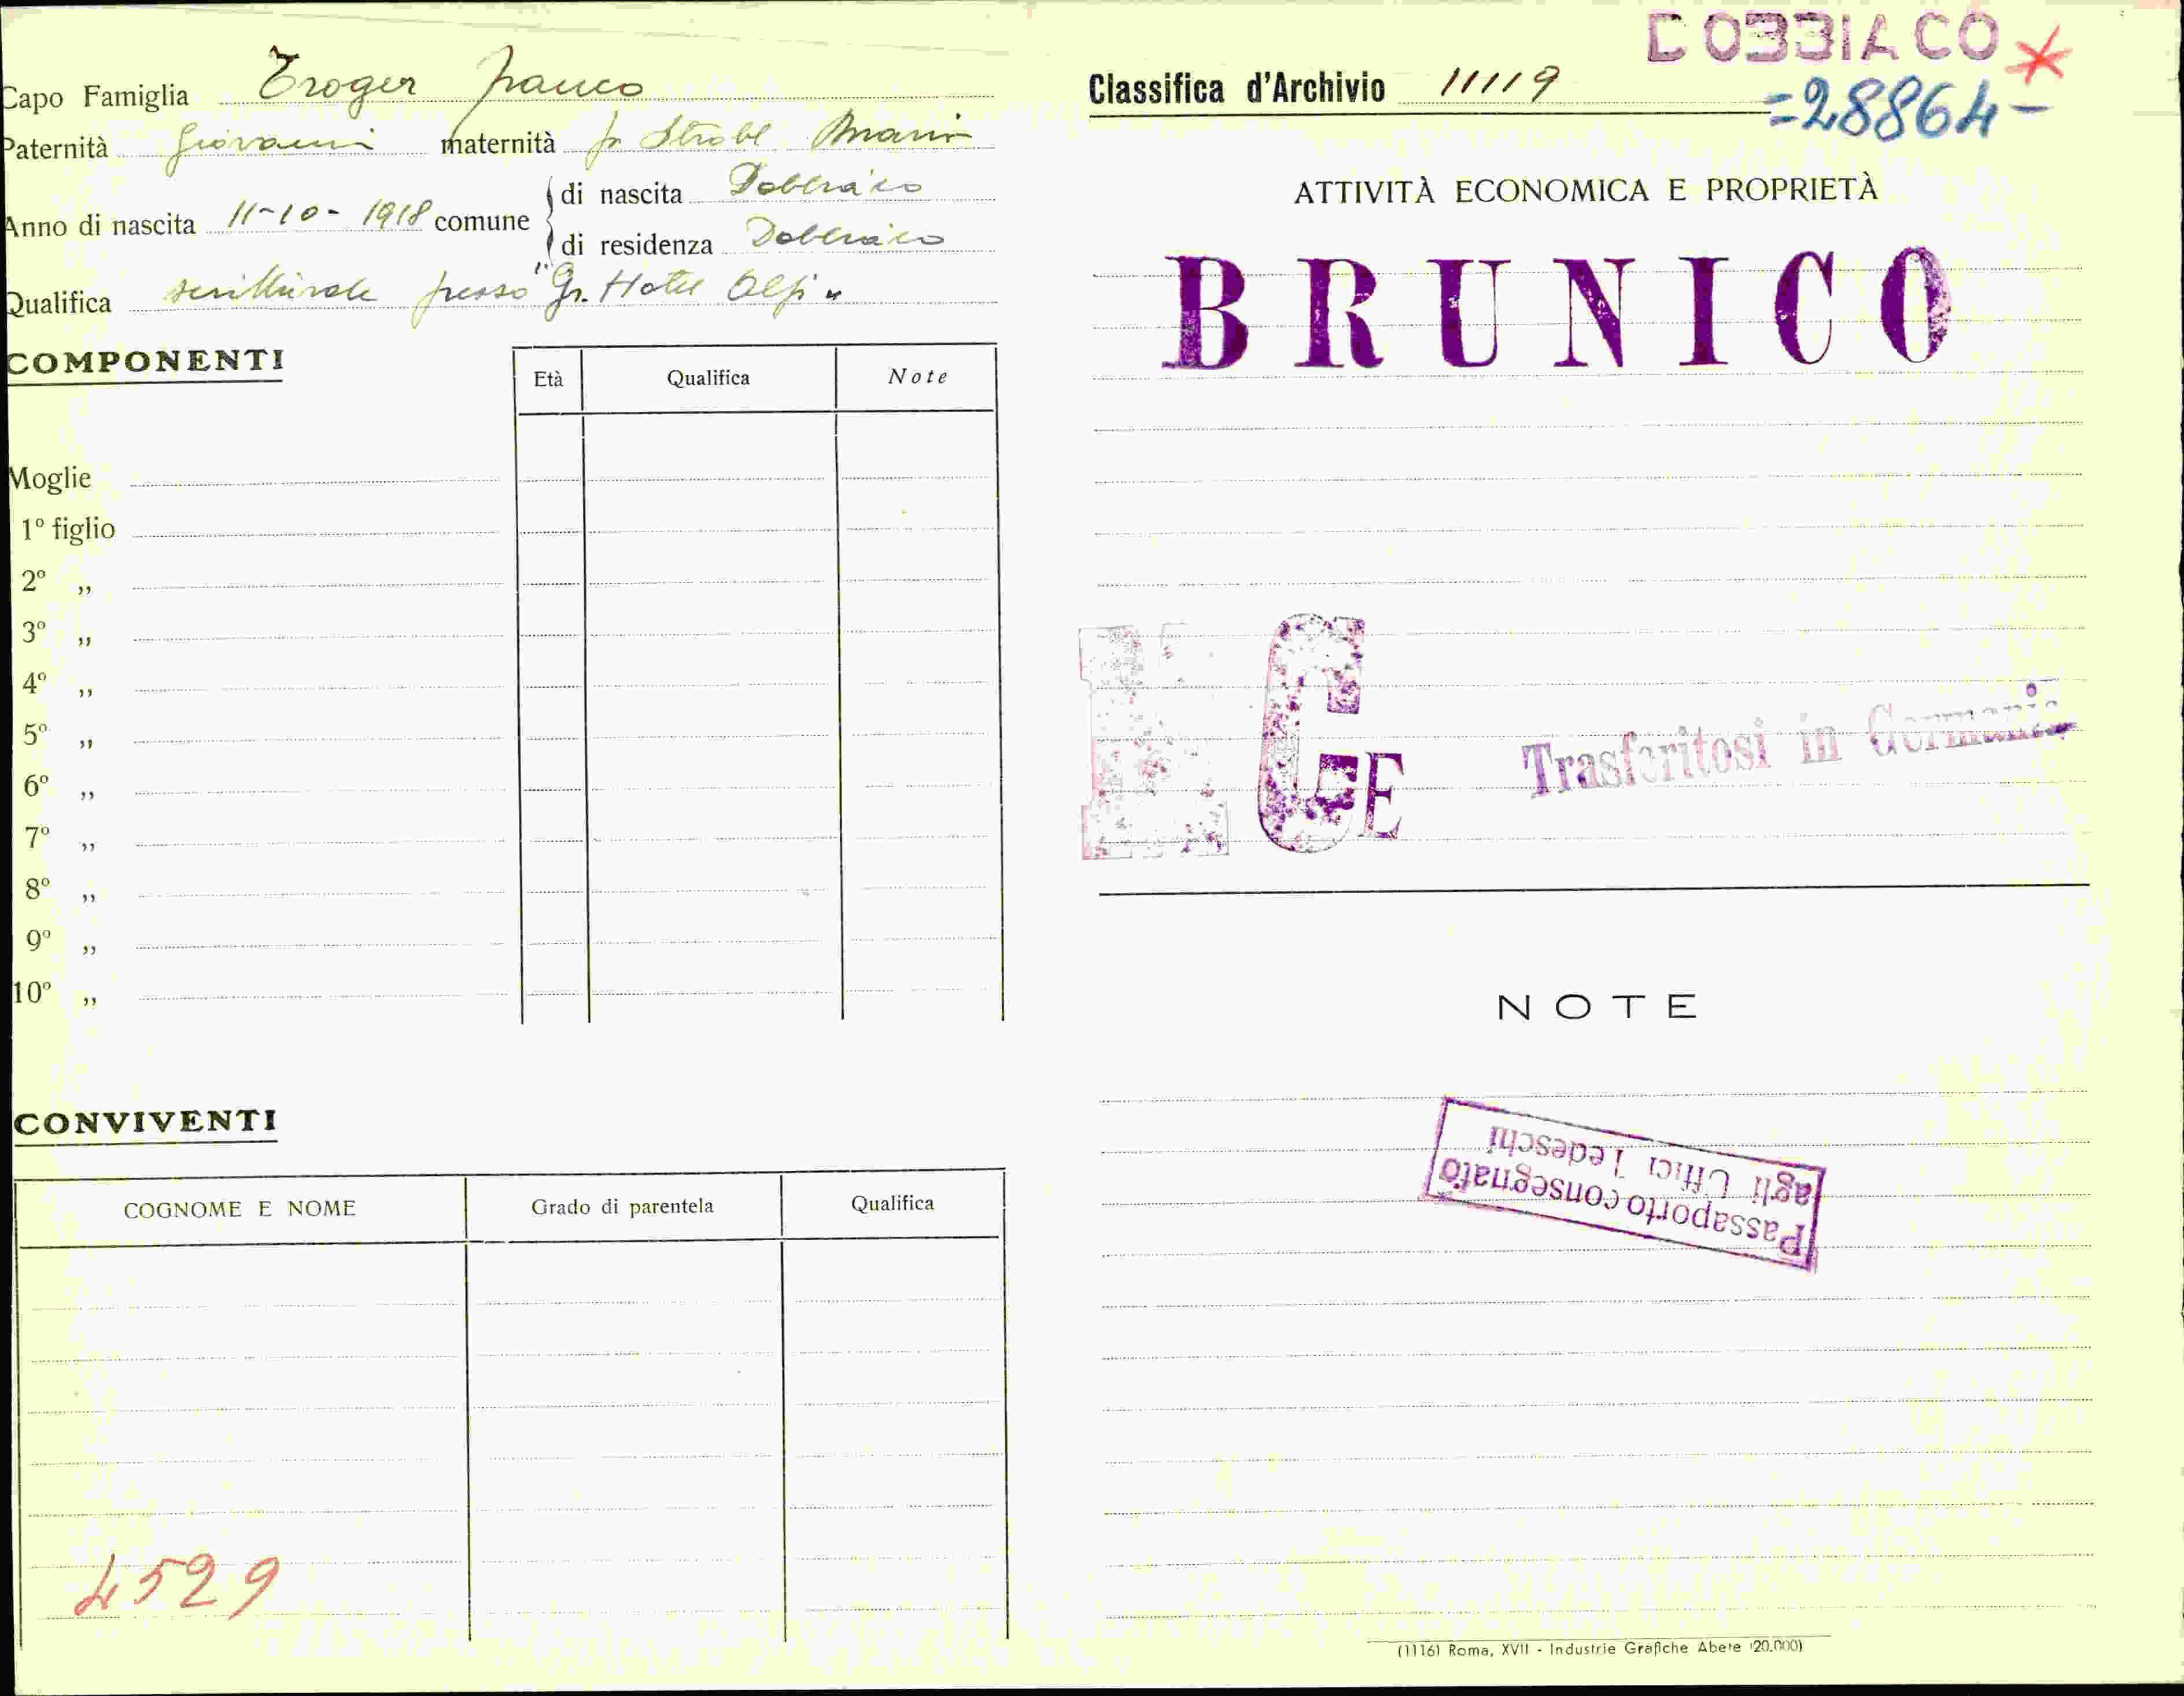 Capo Famiglia Troger Franco
Paternità Giovanni maternità fu Strobl Maria
Anno di nascita 11-10-1918 comune di nascita Dobbiaco
di residenza Dobbiaco
Qualifica scritturale presso "Gr. Hotel Alpi"
COMPONENTI
Età Qualifica Note
Moglie
1º figlio
2º ,,
3º ,,
4º ,,
5º ,,
6º ,,
7º ,,
8º ,,
9º ,,
10º ,,
CONVIVENTI
COGNOME E NOME Grado di parentela Qualifica
4529
DOBBIACO
Classifica d'Archivio 11119
=28864-
ATTIVITÀ ECONOMICA E PROPRIETÀ
BRUNICO
GE
Trasferitosi in Germania
NOTE
Passaporto consegnato
agli Uffici Tedeschi
(1116) Roma, XVII - Industrie Grafiche Abete (20.000)